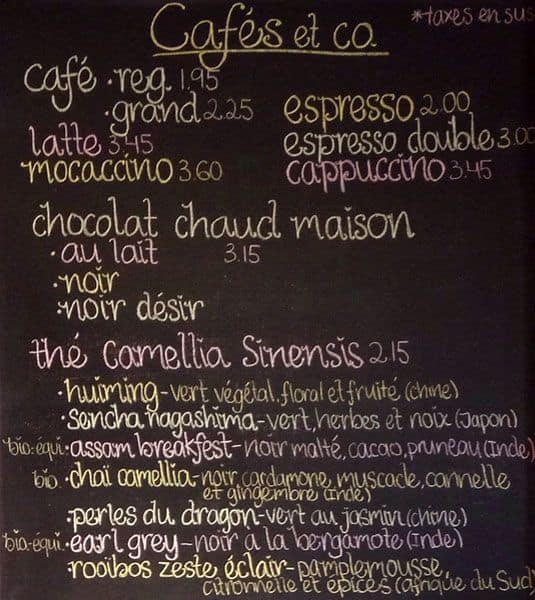 Cafés et co.
*taxes en sus
café • reg. 1.95
• grand 2.25
espresso 2.00
latte 3.45
espresso double 3.00
mocaccino 3.60
cappuccino 3.45
chocolat chaud maison
• au lait 3.15
• noir
• noir désir
thé Camellia Sinensis 2.15
• huiming - vert végétal, floral et fruité (chine)
• sencha nagashima - vert, herbes et noix (Japon)
bio-équi. • assam breakfest - noir malté, cacao, pruneau (Inde)
bio. • chaï camellia - noir, cardamone, muscade, cannelle
et gingembre (Inde)
• perles du dragon - vert au jasmin (chine)
bio-équi. • earl grey - noir a la bergamote (Inde)
• rooibos zeste éclair - pamplemousse,
citronnelle et épices (afrique du Sud)